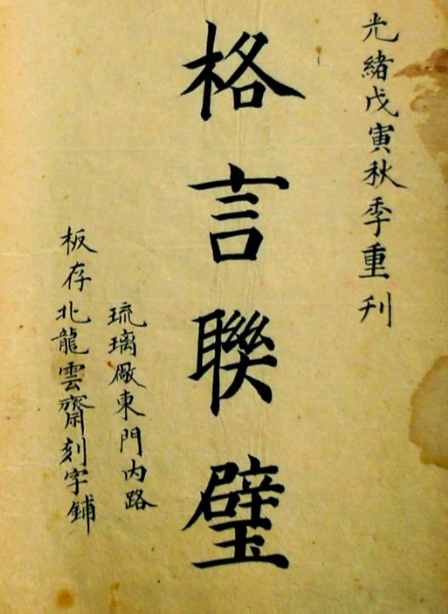 光緒戊寅秋季重刊
格言聯璧
琉璃廠東門內路
板存北龍雲齋刻字鋪